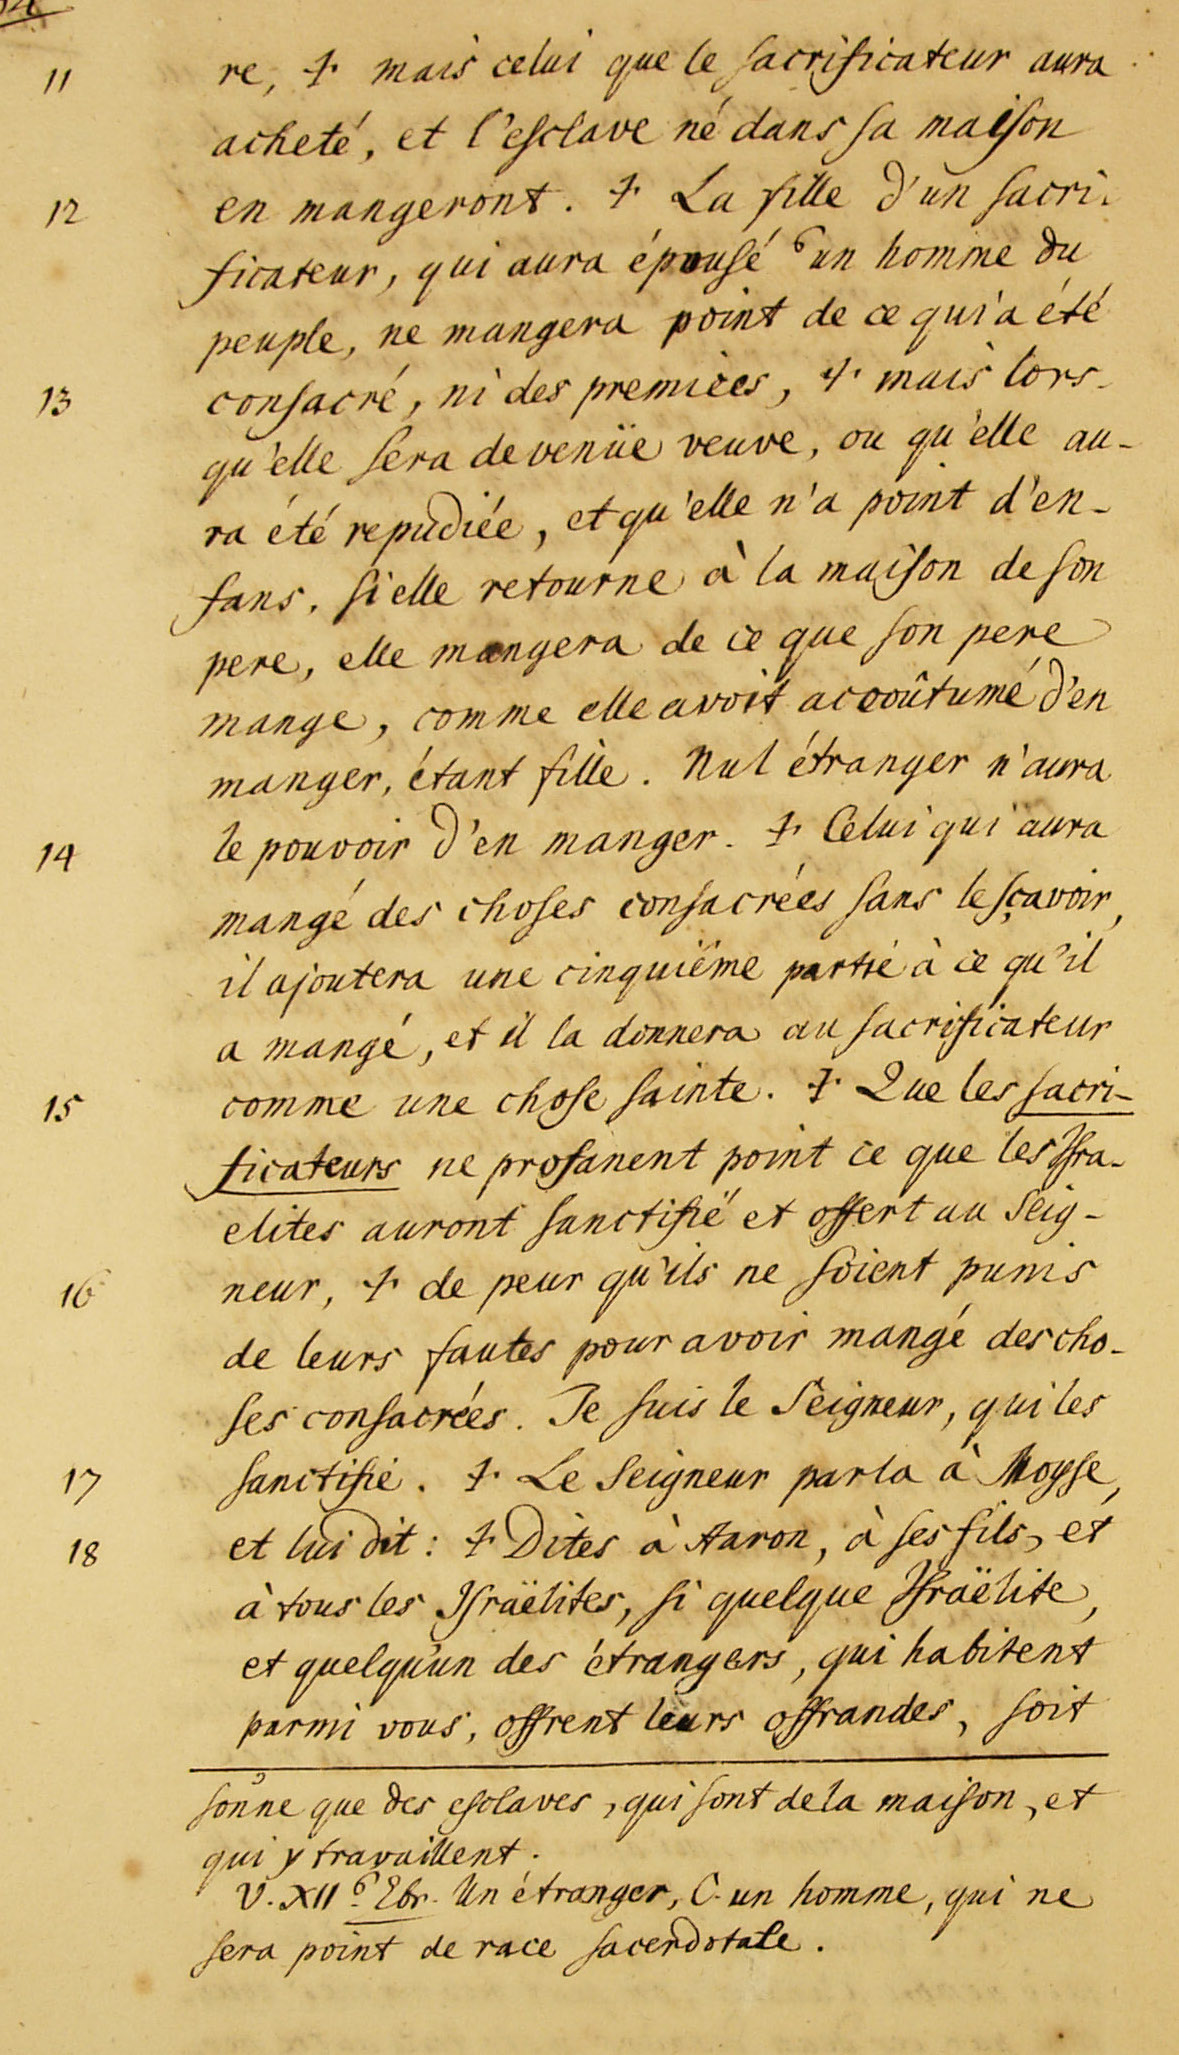 11 re, + mais celui que le sacrificateur aura
acheté, et l'esclave né dans sa maison
12 en mangeront. + La fille d'un sacri-
ficateur, qui aura épousé 6 un homme du
peuple, ne mangera point de ce qui a été
13 consacré, ni des premices, + mais lors-
qu'elle sera devenüe veuve, ou qu'elle au-
ra été repudiée, et qu'elle n'a point d'en-
fans. si elle retourne à la maison de son
pere, elle mangera de ce que son pere
mange, comme elle avoit accoûtumé d'en
manger, étant fille. Nul étranger n'aura
14 le pouvoir d'en manger. + Celui qui aura
mangé des choses consacrées sans le sçavoir,
il ajoutera une cinquiême partie à ce qu'il
a mangé, et il la donnera au sacrificateur
15 comme une chose sainte. + Que les sacri-
ficateurs ne profanent point ce que les Isra-
elites auront sanctifié et offert au Seig-
16 neur, + de peur qu'ils ne soient punis
de leurs fautes pour avoir mangé des cho-
ses consacrées. Je suis le Seigneur, qui les
17 sanctifie. + Le Seigneur parla à Moyse,
18 et lui dit: + Dites à Aaron, à ses fils, et
à tous les Israëlites, si quelque Israëlite,
et quelqu'un des étrangers, qui habitent
parmi vous, offrent leurs offrandes, soit
sonne que des esclaves, qui sont de la maison, et
qui y travaillent.
V. XII 6. Ebr. Un étranger, C. un homme, qui ne
sera point de race sacerdotale.